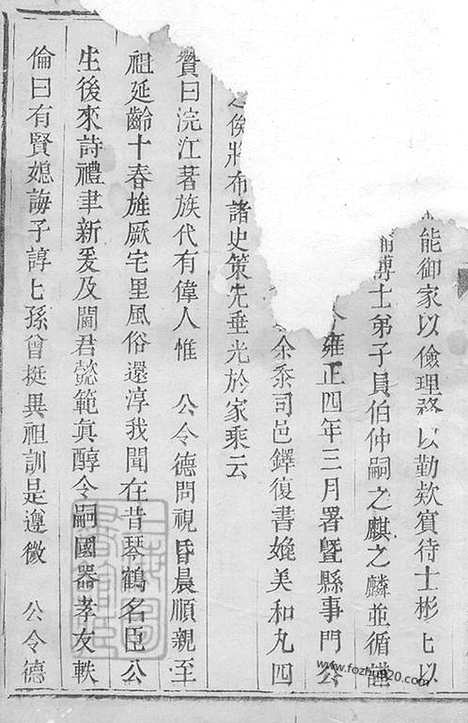 能御家以儉理務以勤欵賓待士彬匕以
博士弟子員伯仲嗣之麒之麟並循謹
雍正四年三月署暨縣事門公
余忝司邑鐸復書媺美和丸四
俟將布諸史策先垂光於家乘云
贊曰浣江著族代有偉人惟 公令德問視昏晨順親至
祖延齡十春旌厥宅里風俗還淳我聞在昔琴鶴名臣公
生後來詩禮聿新爰及閫君懿範真醇令嗣國器孝友軼
倫曰有賢媳誨子諄匕孫曾挺異祖訓是遵微 公令德
www.fozhu920.com